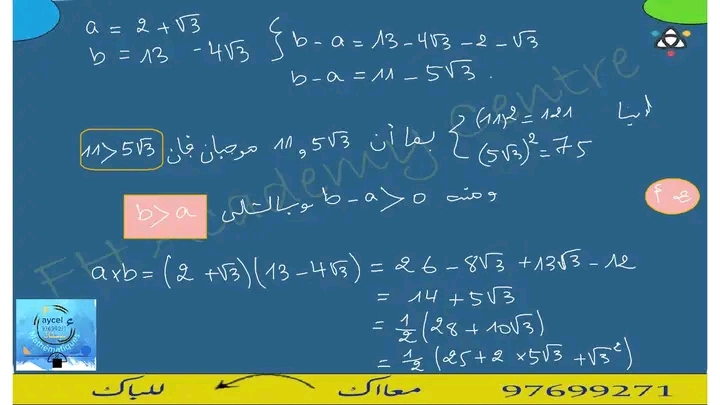 a = 2 + √3
b = 13 - 4√3
b - a = 13 - 4√3 - 2 - √3
b - a = 11 - 5√3 .
لدينا (11)² = 121
(5√3)² = 75
بما أن 5√3 و 11 موجبان فإن 11 > 5√3
ومنه b - a > 0 وبالتالي b > a
a x b = (2 + √3)(13 - 4√3) = 26 - 8√3 + 13√3 - 12
= 14 + 5√3
= 1/2 (28 + 10√3)
= 1/2 (25 + 2 × 5√3 + √3²)
FH Academy Centre
aycel
Mathématiques
97699271 معااك للباك